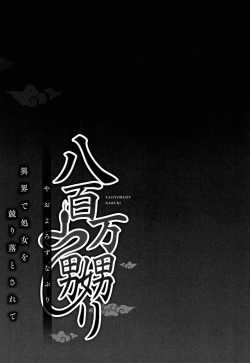 八百万男嬲り
やおよろずなぶり
YAOYOROZU
NABURI
異界で処女を
競り落とされて